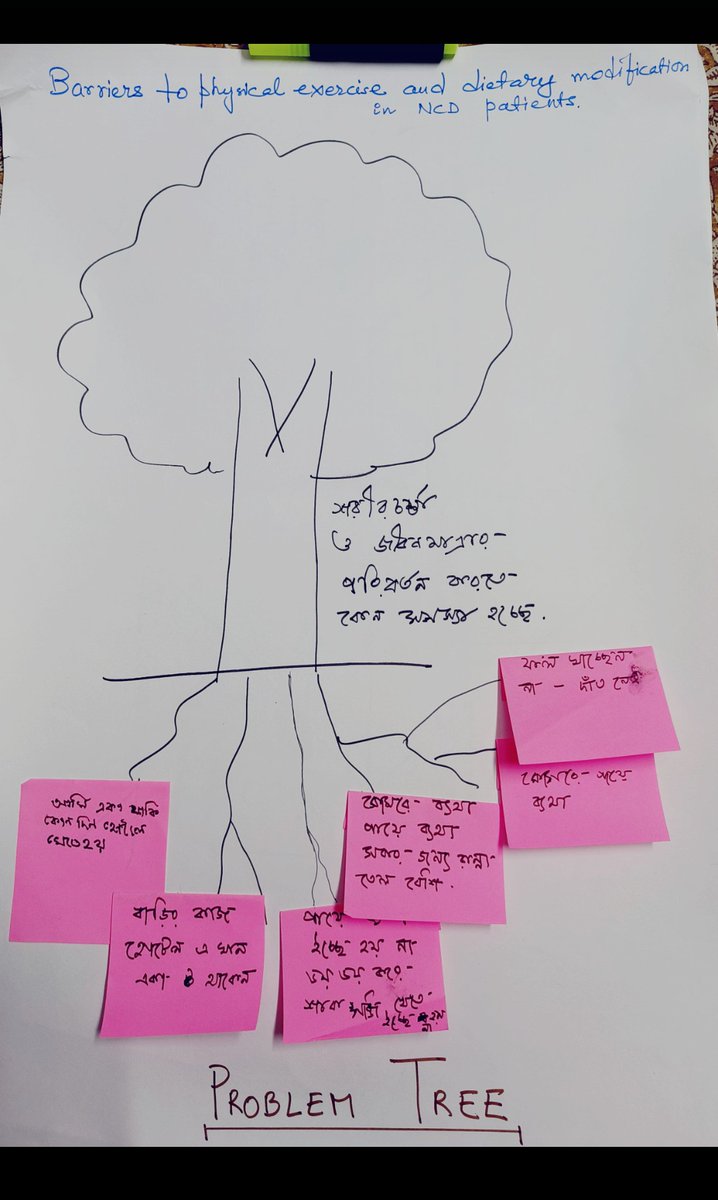 Barriers to physical exercise and dietary modification
in NCD patients.
শরীরচর্চা
ও জীবনযাত্রার
পরিবর্তন করতে
কোন সমস্যা হচ্ছে.
ফল খাচ্ছেন
না - দাঁত নেই
কোমরে পায়ে
ব্যথা
কোমরে ব্যথা
পায়ে ব্যথা
সবার জন্য রান্না
তেল বেশি.
আমি একা থাকি
কোন দিন হোটেলে
খেতে হয়
বাড়ির কাজ
হোটেল এ খান
একা থাকেন
পায়ে
ইচ্ছে হয় না
ভয় ভয় করে
শাক সব্জি খেতে
ইচ্ছে হয়
না
PROBLEM TREE